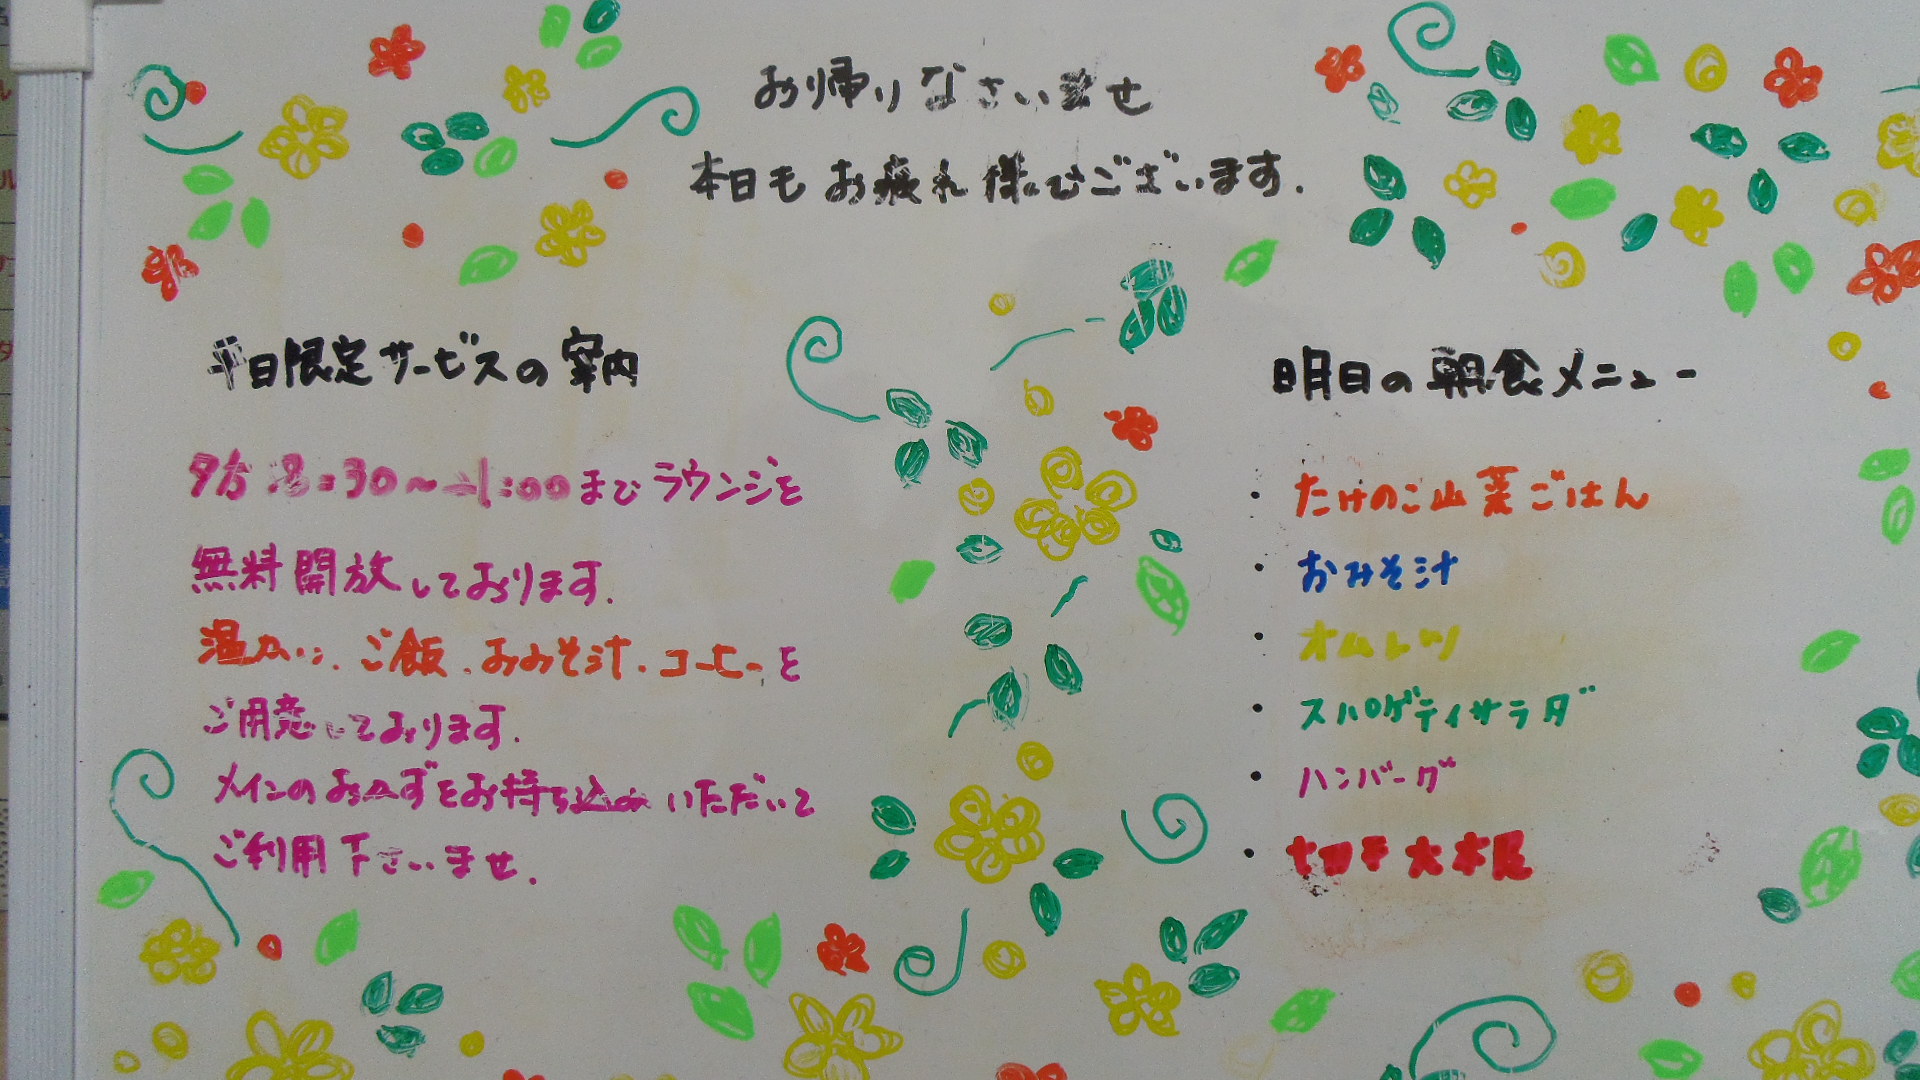 お帰りなさいませ
本日もお疲れ様でございます.
平日限定サービスの案内
夕方 :30~ :00までラウンジを
無料開放しております.
温かい、ご飯、おみそ汁・コーヒーを
ご用意しております.
メインのおかずをお持ち込みいただいて
ご利用下さいませ.
明日の朝食メニュー
・たけのこ山菜ごはん
・おみそ汁
・オムレツ
・スパゲティサラダ
・ハンバーグ
・切干大根